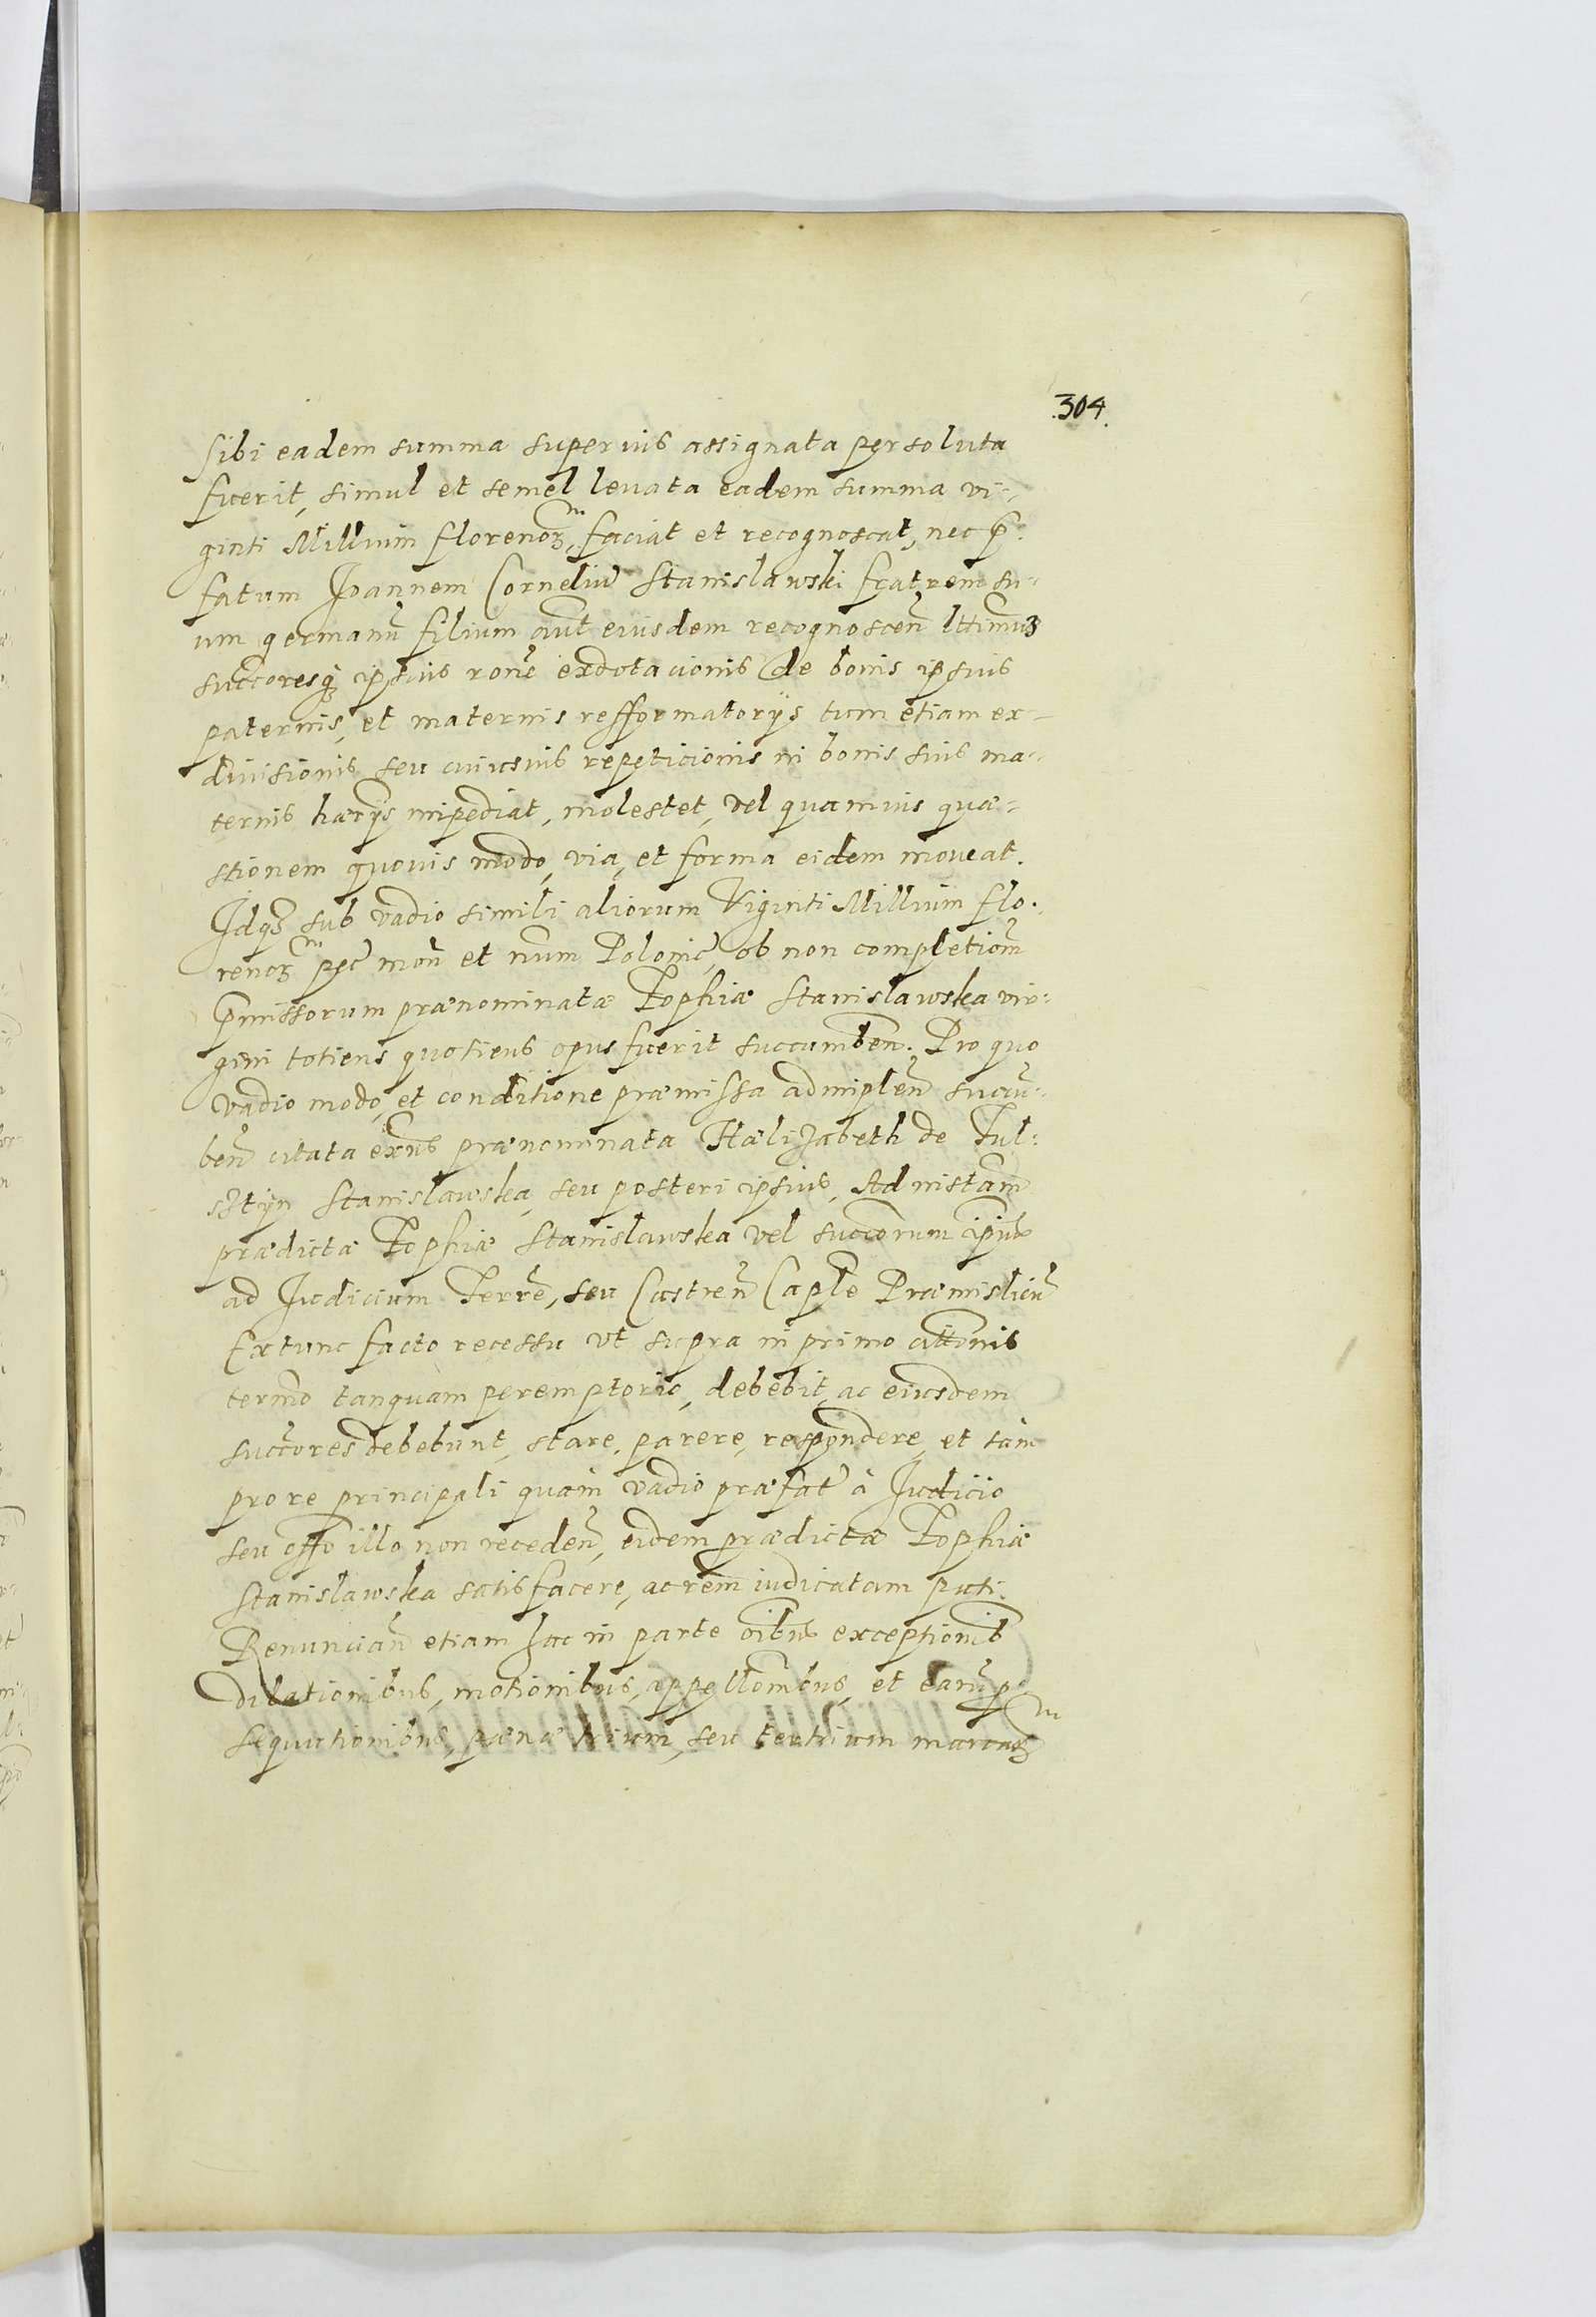 304.
sibi eadem summa superius assignata persoluta
fuerit, simul et semel levata eadem summa vi-
ginti Millium florenoꝝ, faciat et recognoscat, nec p̄-
fatum Joannem Corneliū Stanislawski fratrem su-
um germanū filium aūt eiusdem recognosceñ lttimuʒ
succoresqꝫ ipsius rone exdotacionis de bonis ipsius
paternis, et maternis refformatorÿs tum etiam ex-
divisionis seu cuiusvis repeticionis in bonis suis ma-
ternis hærÿs impediat, molestet, vel quamvis quæ-
stionem quovis modo, via, et forma eidem moveat.
Jdqꝫ sub vadio simili aliorum Viginti Millium flo-
renoꝝ pec̄ moñ et num̄ Polonic̄, ob non completiom̄
p̄missorum prænominatæ Zophiæ Stanislawska vir-
gini totiens quotiens opus fuerit succumbeñ. Pro quo
vadio modo, et conditione præmissa adimpleñ succū-
beñ citata exñs prænominata Hælizabeth de Ful-
sztÿn Stanislawska, seu posteri ipsius, Ad instam̄
prædictæ Zophiæ Stanislawska vel succorum ipius
ad Judicium Terrē, seu Castreñ Caple Præmislieñ
Extunc facto recessu vt supra in primo cittonis
termō tanquam peremptorio, debebit, ac eiusdem
succores debebunt, stare, parere, respondere, et tam
pro re principali quam vadio præfat̄ à Judicio
seu offo illo non recedeñ, eidem prædictæ Zophiæ
Stanislawska satisfacere, ac rem iudicatam pati.
Renunciañ etiam hac in parte oībus exceptionib
dilationibus, motionibus, appellom̄bus, et earū p-
sequutionibus, pæna trium, seu marcaꝝ